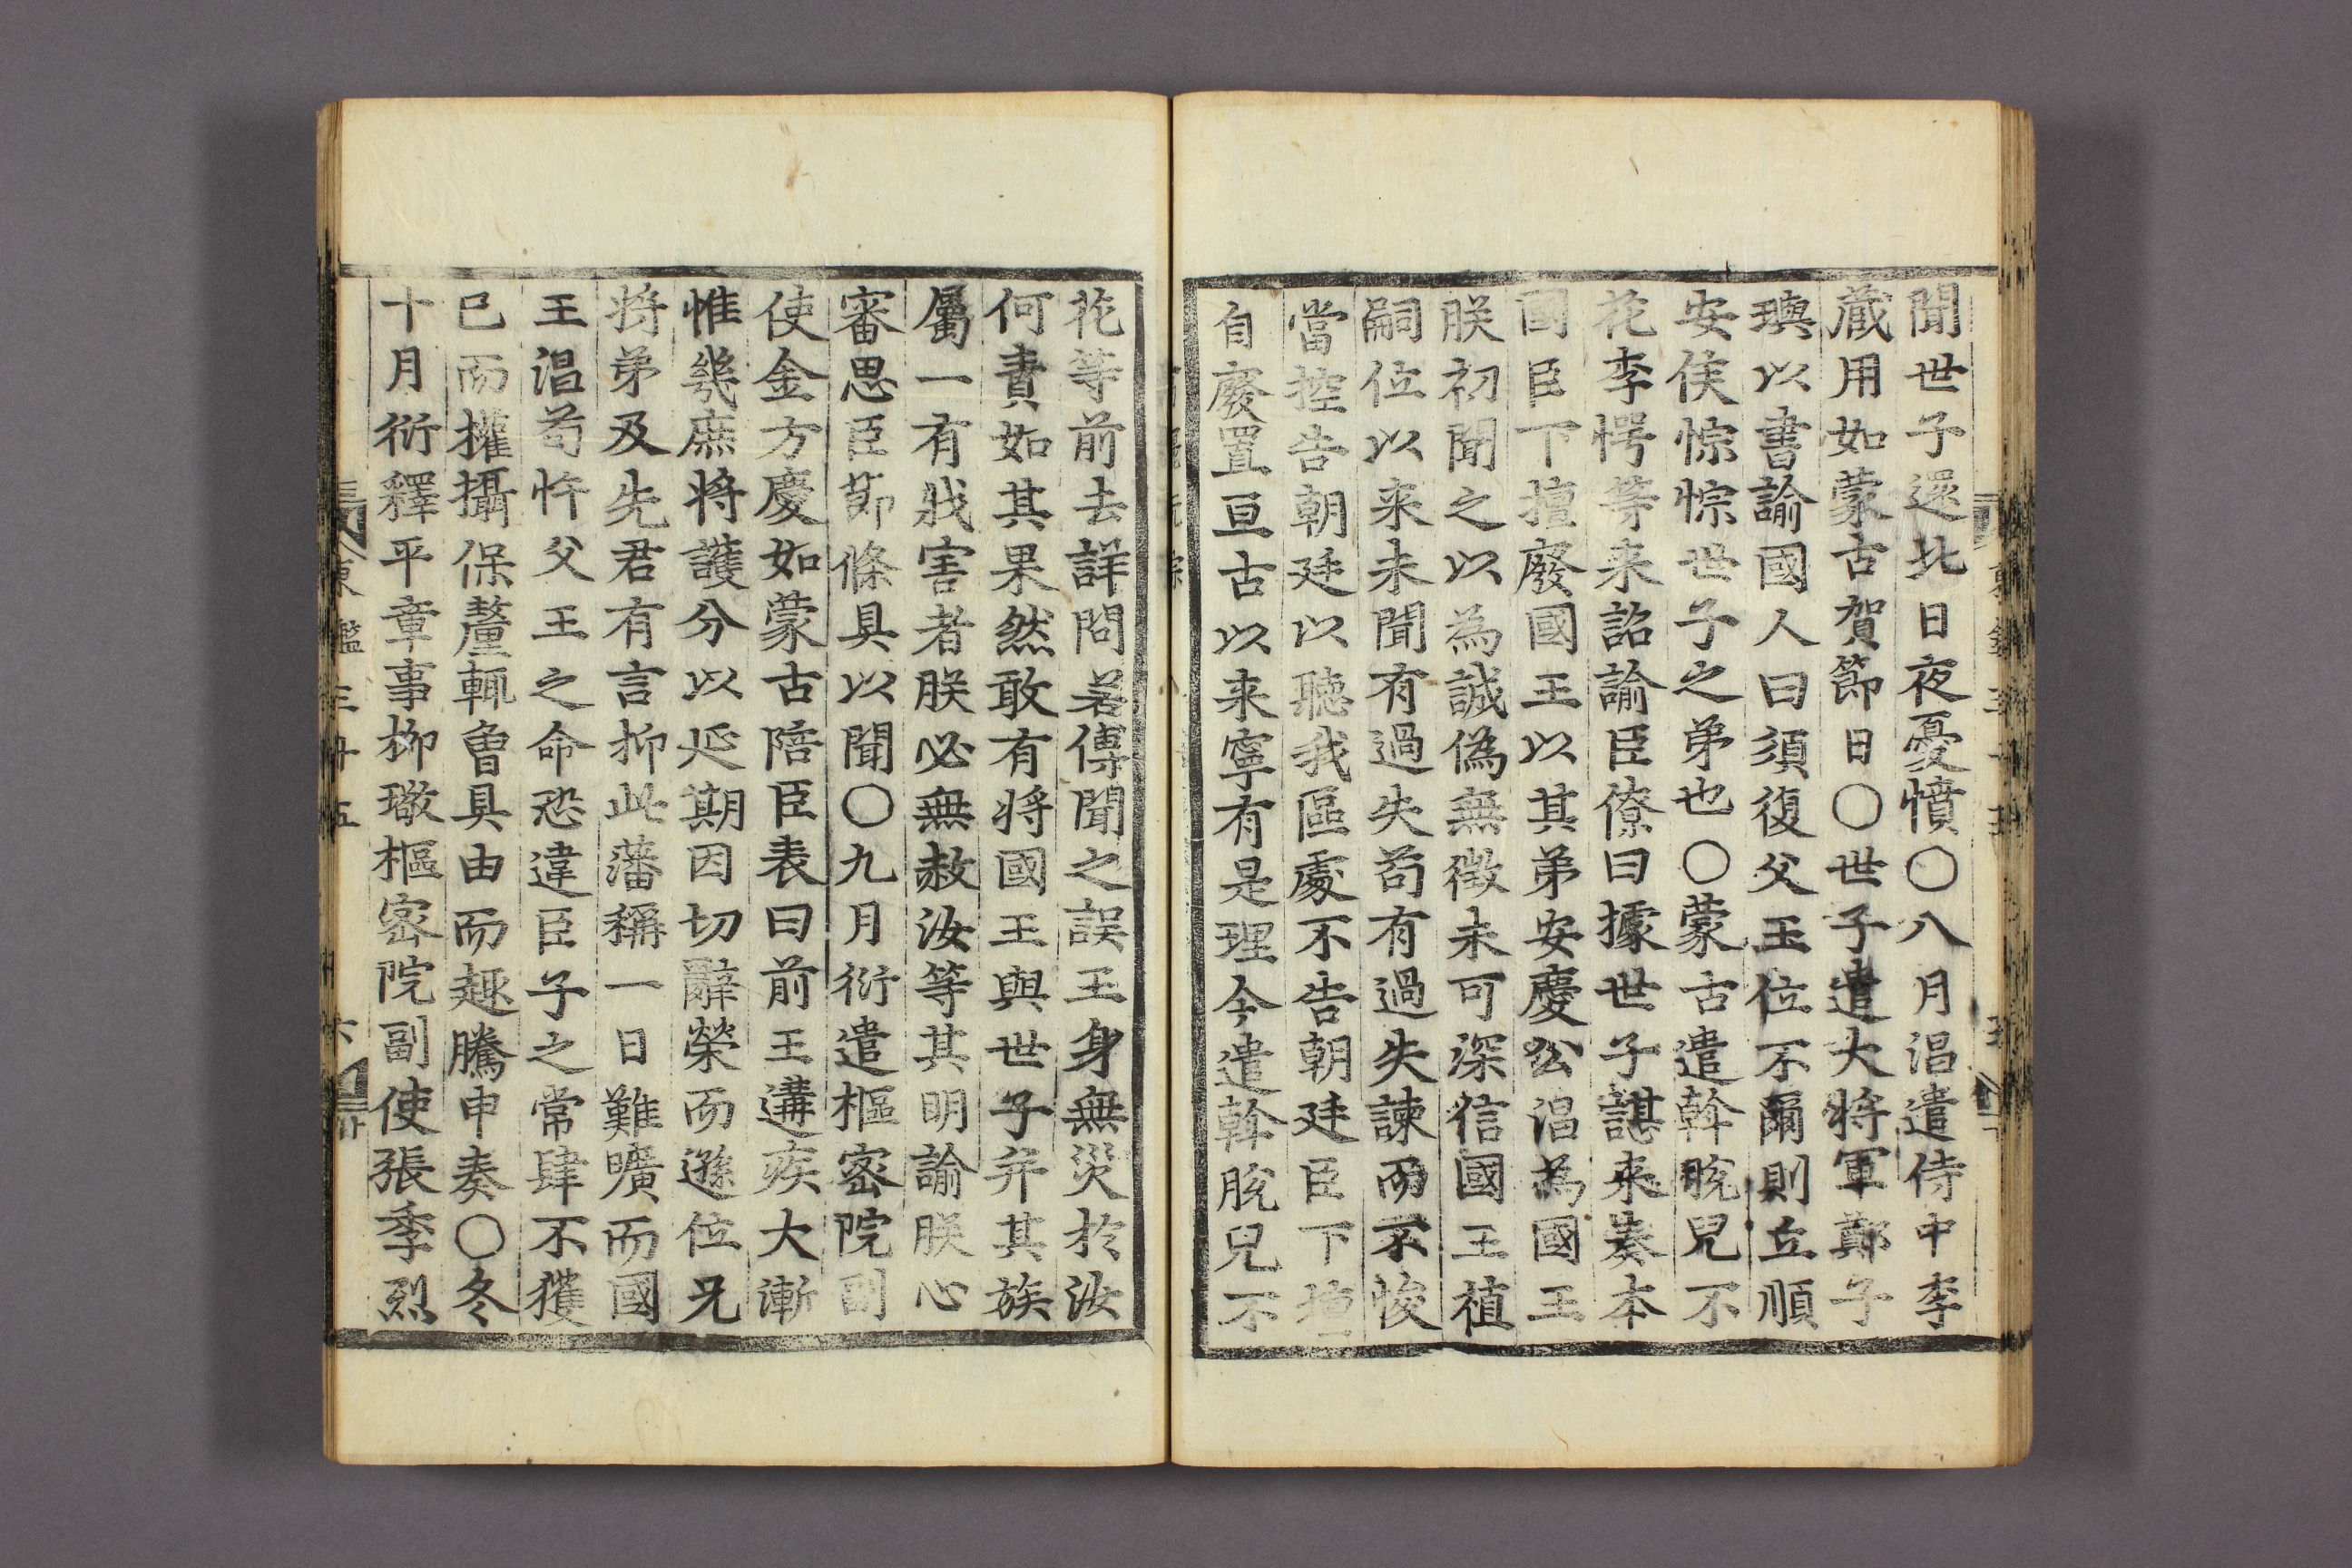 聞世子還北日夜憂憤〇八月淐遣侍中李
蔵用如蒙古賀節日〇世子遣大将軍鄭子
璵以書諭國人曰須復父王位不爾則立順
安侯悰悰世子之弟也〇蒙古遣斡脫兒不
花李愕等来詔諭臣僚曰據世子諶来奏本
國臣下擅廢國王以其弟安慶公淐為國王
朕初聞之以為誠偽無徵未可深信國王植
嗣位以来未聞有過失苟有過失諫而不悛
當控告朝廷以聽我區處不告朝廷臣下擅
自廢置亘古以来寧有是理今遣斡脫兒不
花等前去詳問若傳聞之誤王身無災於汝
何責如其果然敢有将國王與世子弁其族
屬一有戕害者朕必無赦汝等其明諭朕心
審思臣節條具以聞〇九月衍遣樞密院副
使金方慶如蒙古陪臣表曰前王遘疾大漸
惟幾庶将護分以延期因切辭榮而遜位兄
将弟及先君有言抑此藩稱一日難曠而國
王淐苟忤父王之命恐違臣子之常肆不獲
已而權攝保釐輒曾具由而趣騰申奏〇冬
十月衍釋平章事柳璥樞密院副使張季烈
東鑑三十五
六